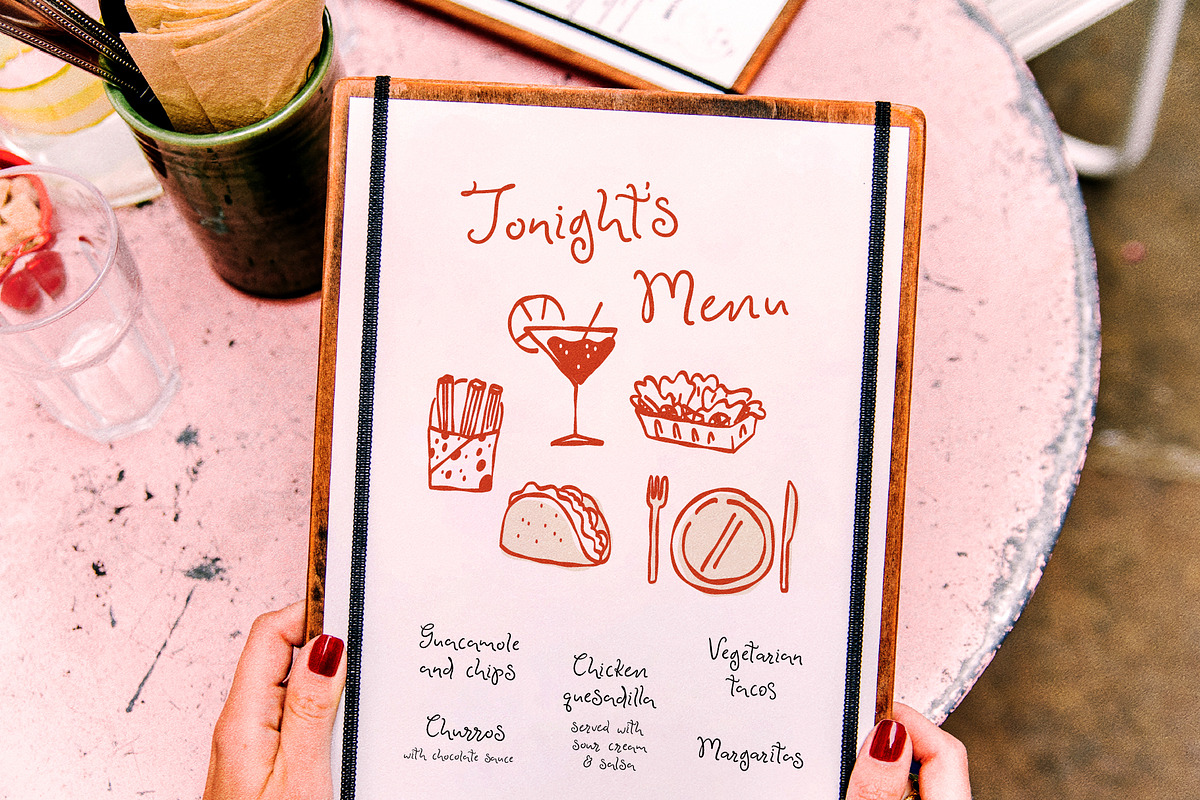 Tonight's
Menu
Guacamole
and chips
Churros
with chocolate sauce
Chicken
quesadilla
served with
sour cream
& salsa
Vegetarian
tacos
Margaritas